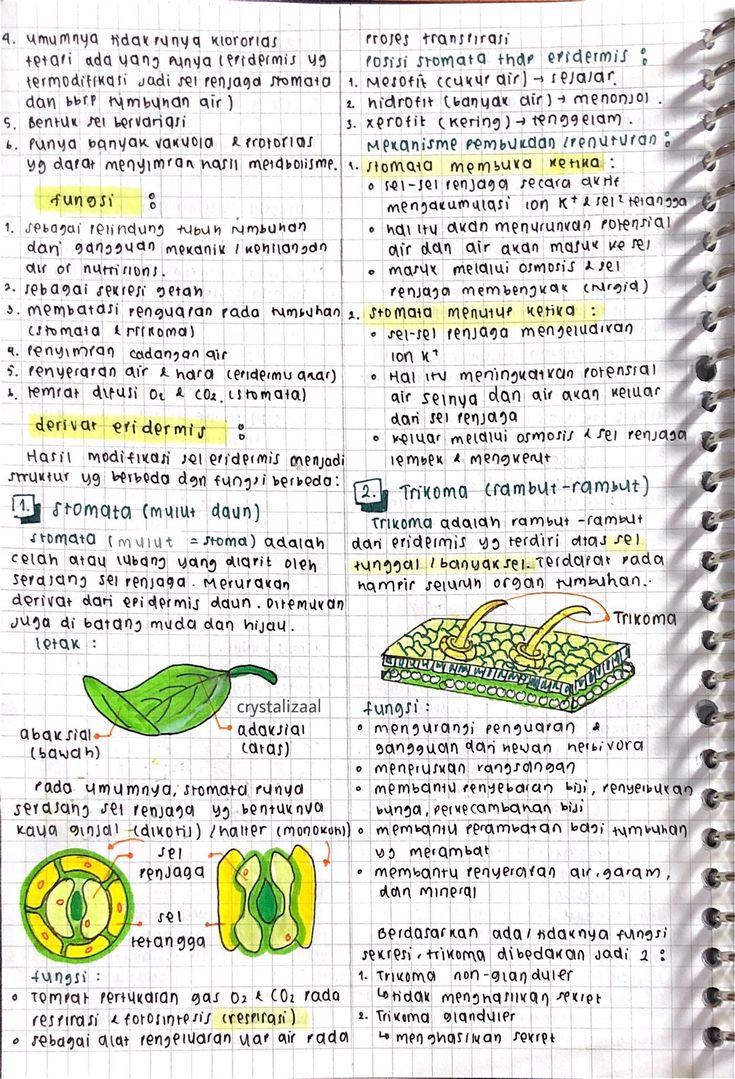 4. umumnya tidak punya kloroplas
tetapi ada yang punya (epidermis yg
termodifikasi jadi sel penjaga stomata
dan bbrp tumbuhan air)
5. Bentuk sel bervariasi
6. Punya banyak vakuola & protoplas
yg dapat menyimpan hasil metabolisme.
fungsi :
1. sebagai pelindung tubuh tumbuhan
dari gangguan mekanik / kehilangan
air or nutritions.
2. sebagai sekresi getah
3. membatasi penguapan pada tumbuhan
(stomata & trikoma)
4. penyimpan cadangan air
5. penyerapan air & hara (epidermis akar)
6. tempat difusi O2 & CO2. (stomata)
derivat epidermis :
Hasil modifikasi sel epidermis menjadi
struktur yg berbeda dgn fungsi berbeda:
1. stomata (mulut daun)
stomata (mulut = stoma) adalah
celah atau lubang yang diapit oleh
sepasang sel penjaga. Merupakan
derivat dari epidermis daun. Ditemukan
juga di batang muda dan hijau.
letak :
crystalizaal
abaksial
(bawah)
adaksial
(atas)
Pada umumnya, stomata punya
sepasang sel penjaga yg bentuknya
kaya ginjal (dikotil) / halter (monokotil)
sel
penjaga
sel
tetangga
fungsi :
• Tempat pertukaran gas O2 & CO2 pada
respirasi & fotosintesis (respirasi)
• sebagai alat pengeluaran uap air pada
proses transpirasi
posisi stomata thdp epidermis :
1. Mesofit (cukup air) → sejajar.
2 hidrofit (banyak air) → menonjol.
3. xerofit (kering) → tenggelam.
Mekanisme pembukaan / penutupan :
1. stomata membuka ketika :
• sel-sel penjaga secara aktif
mengakumulasi ion K+ & sel² tetangga
• hal itu akan menurunkan potensial
air dan air akan masuk ke sel
• masuk melalui osmosis & sel
penjaga membengkak (turgid)
2. stomata menutup ketika :
• sel-sel penjaga mengeluarkan
ion K+
• Hal itu meningkatkan potensial
air selnya dan air akan keluar
dari sel penjaga
• keluar melalui osmosis & sel penjaga
lembek & mengkerut
2. Trikoma (rambut-rambut)
Trikoma adalah rambut-rambut
dari epidermis yg terdiri atas sel
tunggal / banyak sel. Terdapat pada
hampir seluruh organ tumbuhan.
Trikoma
fungsi :
• mengurangi penguapan &
gangguan dari hewan herbivora
• meneruskan rangsangan
• membantu penyebaran biji, penyerbukan
bunga, perkecambahan biji
• membantu perambatan bagi tumbuhan
yg merambat
• membantu penyerapan air, garam,
dan mineral
Berdasarkan ada / tidaknya fungsi
sekresi, trikoma dibedakan jadi 2 :
1. Trikoma non-glanduler
↳ tidak menghasilkan sekret
2. Trikoma glanduler
↳ menghasilkan sekret